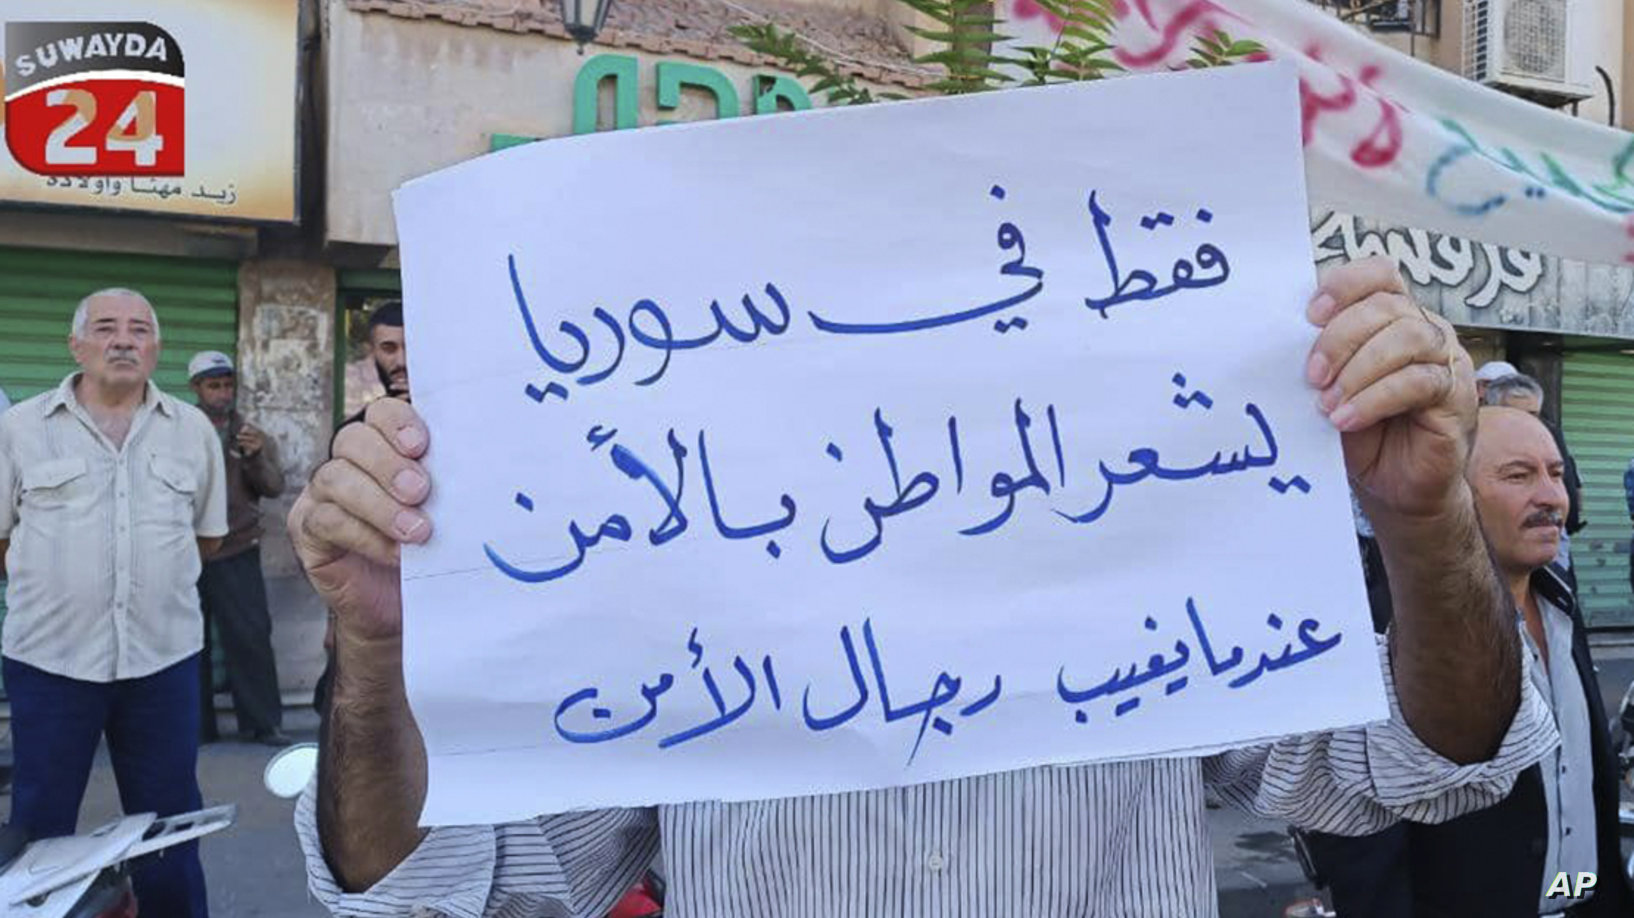 SUWAYDA
24
زيد مهنا وأولاده
فقط في سوريا
يشعر المواطن بالأمن
عندما يغيب رجال الأمن
AP